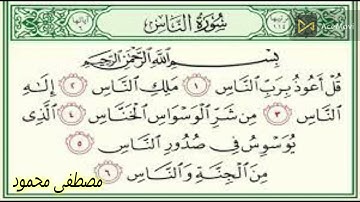 سُورَةُ النَّاسِ
بِسْمِ اللَّهِ الرَّحْمَٰنِ الرَّحِيمِ
قُلْ أَعُوذُ بِرَبِّ النَّاسِ ١ مَلِكِ النَّاسِ ٢ إِلَٰهِ
النَّاسِ ٣ مِن شَرِّ الْوَسْوَاسِ الْخَنَّاسِ ٤ الَّذِي
يُوَسْوِسُ فِي صُدُورِ النَّاسِ ٥
مِنَ الْجِنَّةِ وَالنَّاسِ ٦
مصطفى محمود